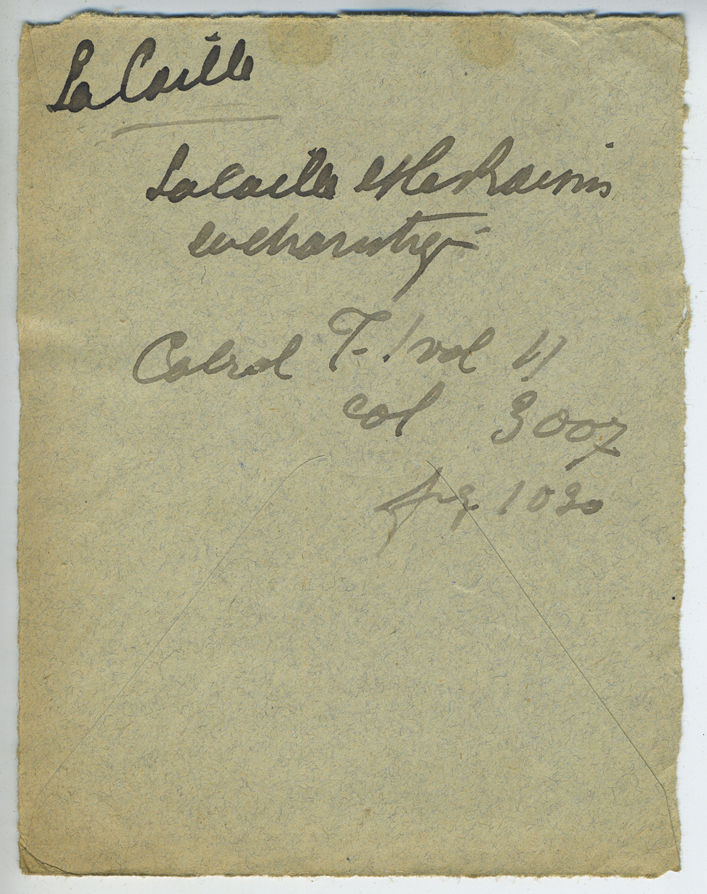 La Caille
La Caille et le Raisin
eucharistique
Cabrol T. 1 vol 11
col 3007
fig 1030